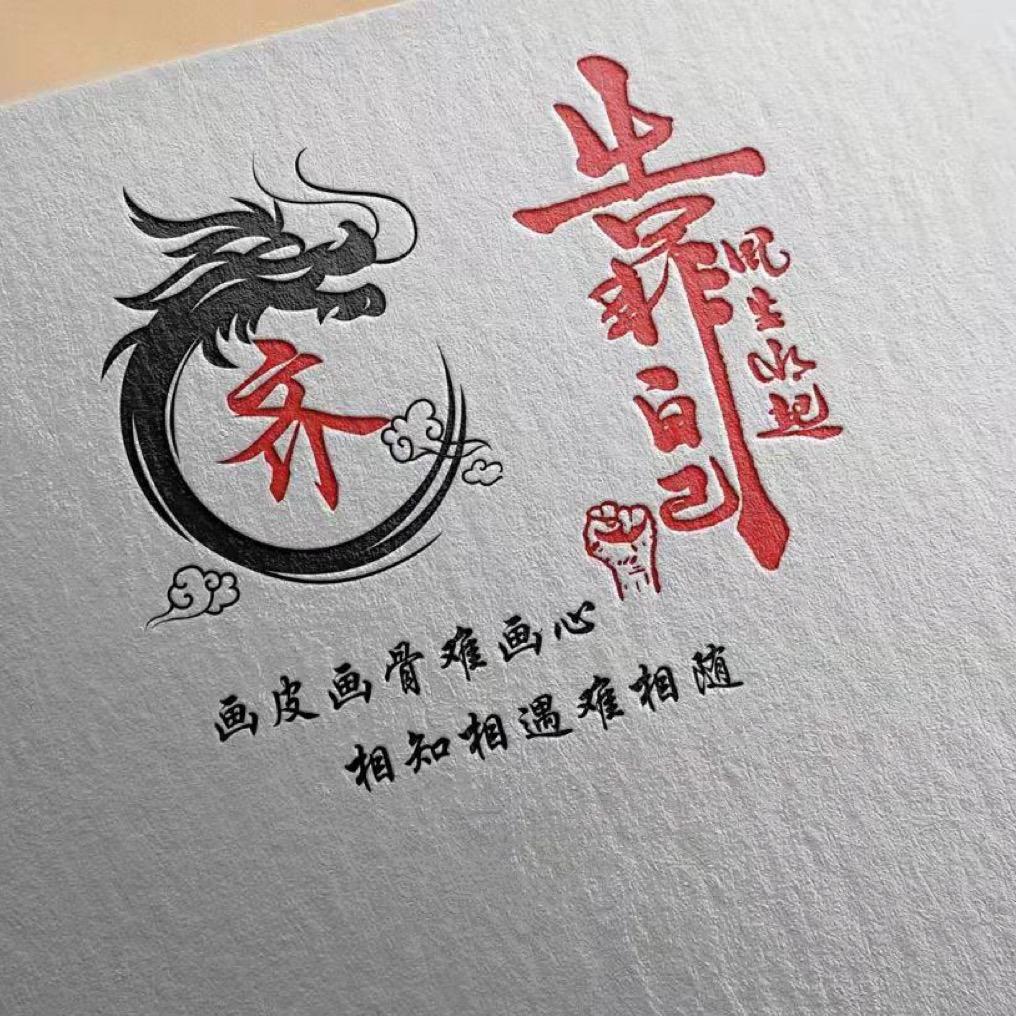 齐
靠自己
风生水起
画皮画骨难画心
相知相遇难相随